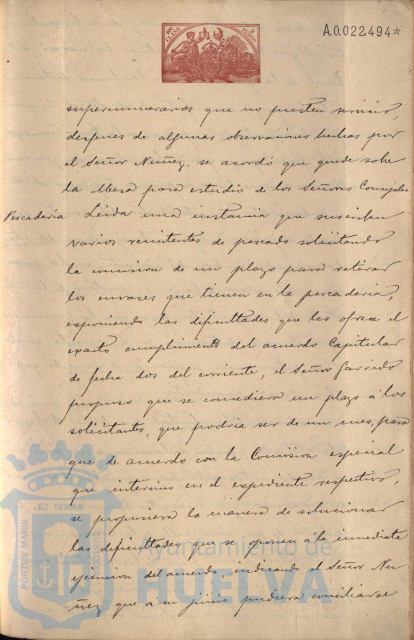 A.0.022,494*
supernumerarios que no presten servicio,
despues de algunas observaciones hechas por
el Señor Nuñez, se acordó que quede sobre
la Mesa para estudio de los Señores Concejales
Pescaderia Leida una instancia que suscriben
varios remitentes de pescado solicitando
la concesion de un plazo para retirar
los envases que tienen en la pescaderia,
exponiendo las dificultades que les ofrece el
exacto cumplimiento del acuerdo Capitular
de fecha dos del corriente, el Señor Garrido
propuso que se concediera un plazo á los
solicitantes, que podria ser de un mes, para
que de acuerdo con la Comision especial
que intervino en el expediente respectivo,
se propusiera la manera de solucionar
las dificultades que se oponen á la inmediata
ejecucion del acuerdo, indicando el Señor Nu-
ñez que a su juicio pudiera conciliarse
PORTUS MARIS
ET TERRÆ
Ayuntamiento de
HUELVA